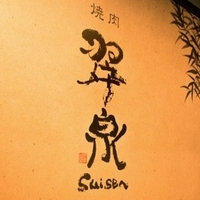 焼肉
翠泉
Suisen